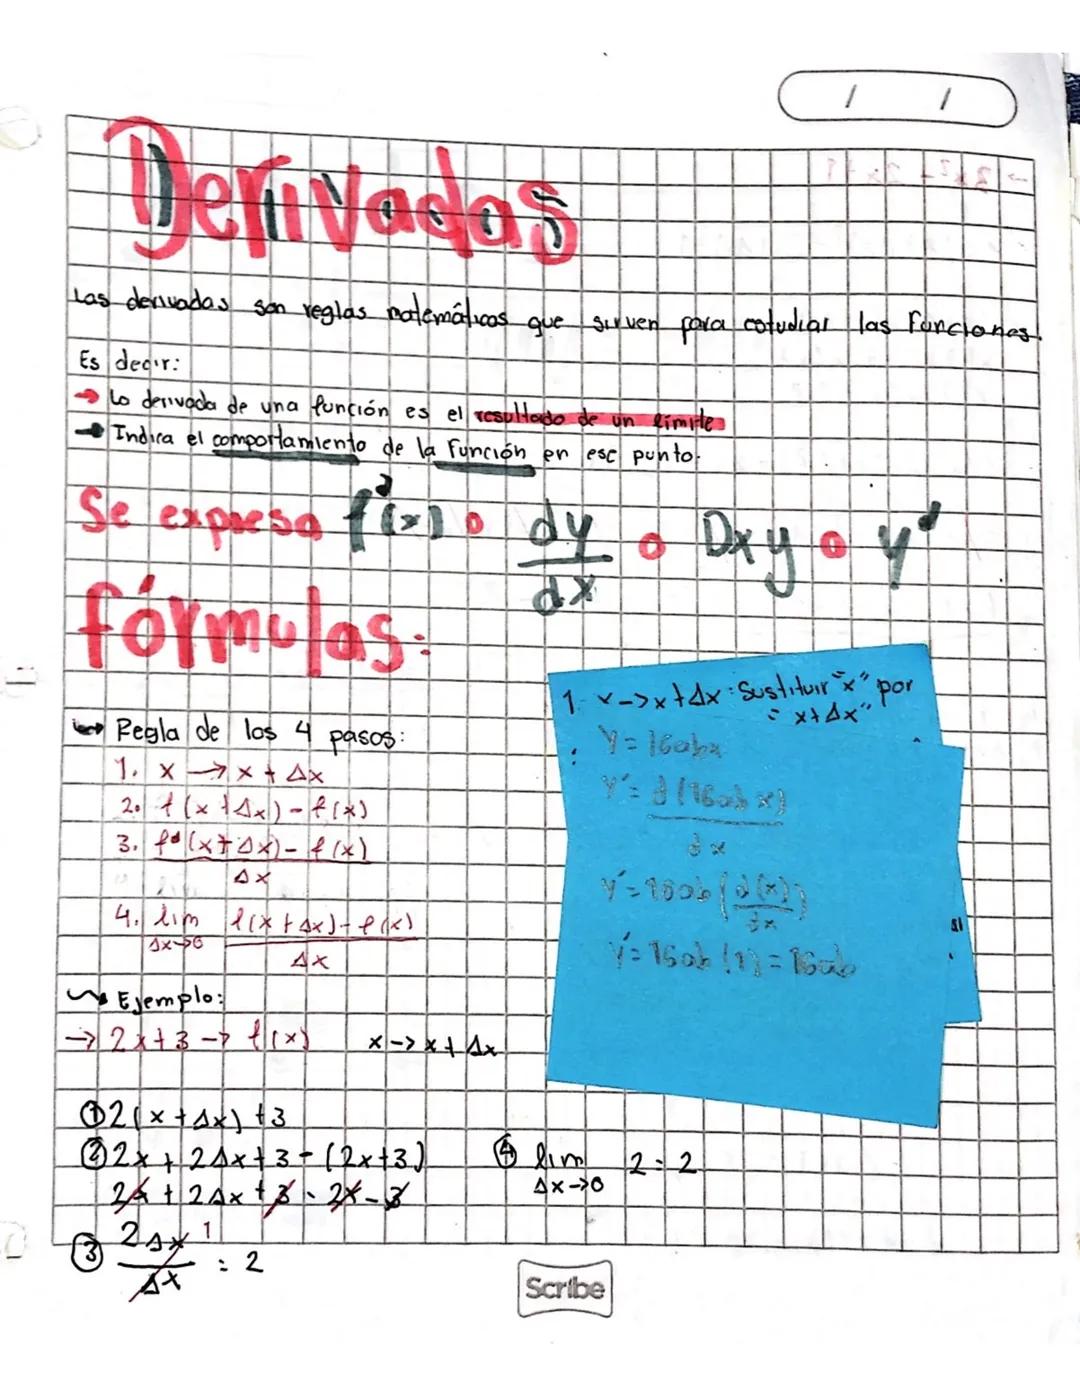 / /
Derivadas
Las derivadas son reglas matemáticas que sirven para estudiar las funciones.
Es decir:
→ La derivada de una función es el resultado de un límite
→ Indica el comportamiento de la función en ese punto.
Se expresa f'(x) o dy/dx o Dxy o y'
fórmulas:
↪ Regla de los 4 pasos:
1. x → x + Δx
2. f(x+Δx)-f(x)
3. f(x+Δx)-f(x)
Δx
4. lim f(x+Δx)-f(x)
Δx→0 Δx
1. x->x+Δx: Sustituir "x" por
"x+Δx"
Y=16abx
Y'= d(16abx)
dx
Y'=16ab(d(x)/dx)
Y'=16ab(1)=16ab
Ejemplo:
→ 2x+3 → f(x) x->x+Δx
① 2(x+Δx)+3
② 2x+2Δx+3-(2x+3)
2x+2Δx+3-2x-3
③ 2Δx 1
Δx = 2
④ lim 2=2
Δx→0
Scribe